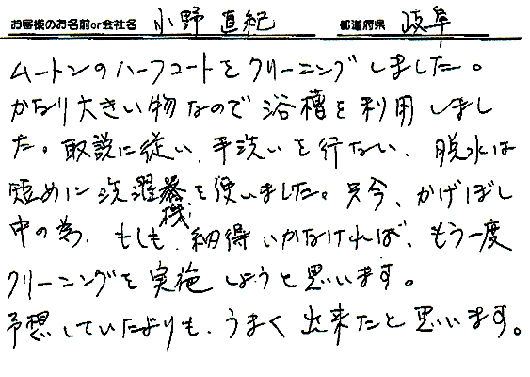 お客様のお名前or会社名 小野 直紀 都道府県 岐阜
ムートンのハーフコートをクリーニングしました。
かなり大きい物なので浴槽を利用しまし
た。取説に従い、手洗いを行ない、脱水は
短めに洗濯機を使いました。只今、かげぼし
中の為、もしも、納得いかなければ、もう一度
クリーニングを実施しようと思います。
予想していたよりも、うまく出来たと思います。